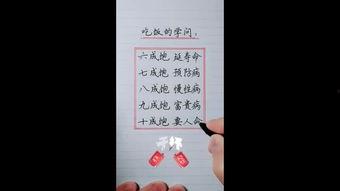 吃饭的学问，
六成饱 延寿命
七成饱 预防病
八成饱 慢性病
九成饱 富贵病
十成饱 要人命